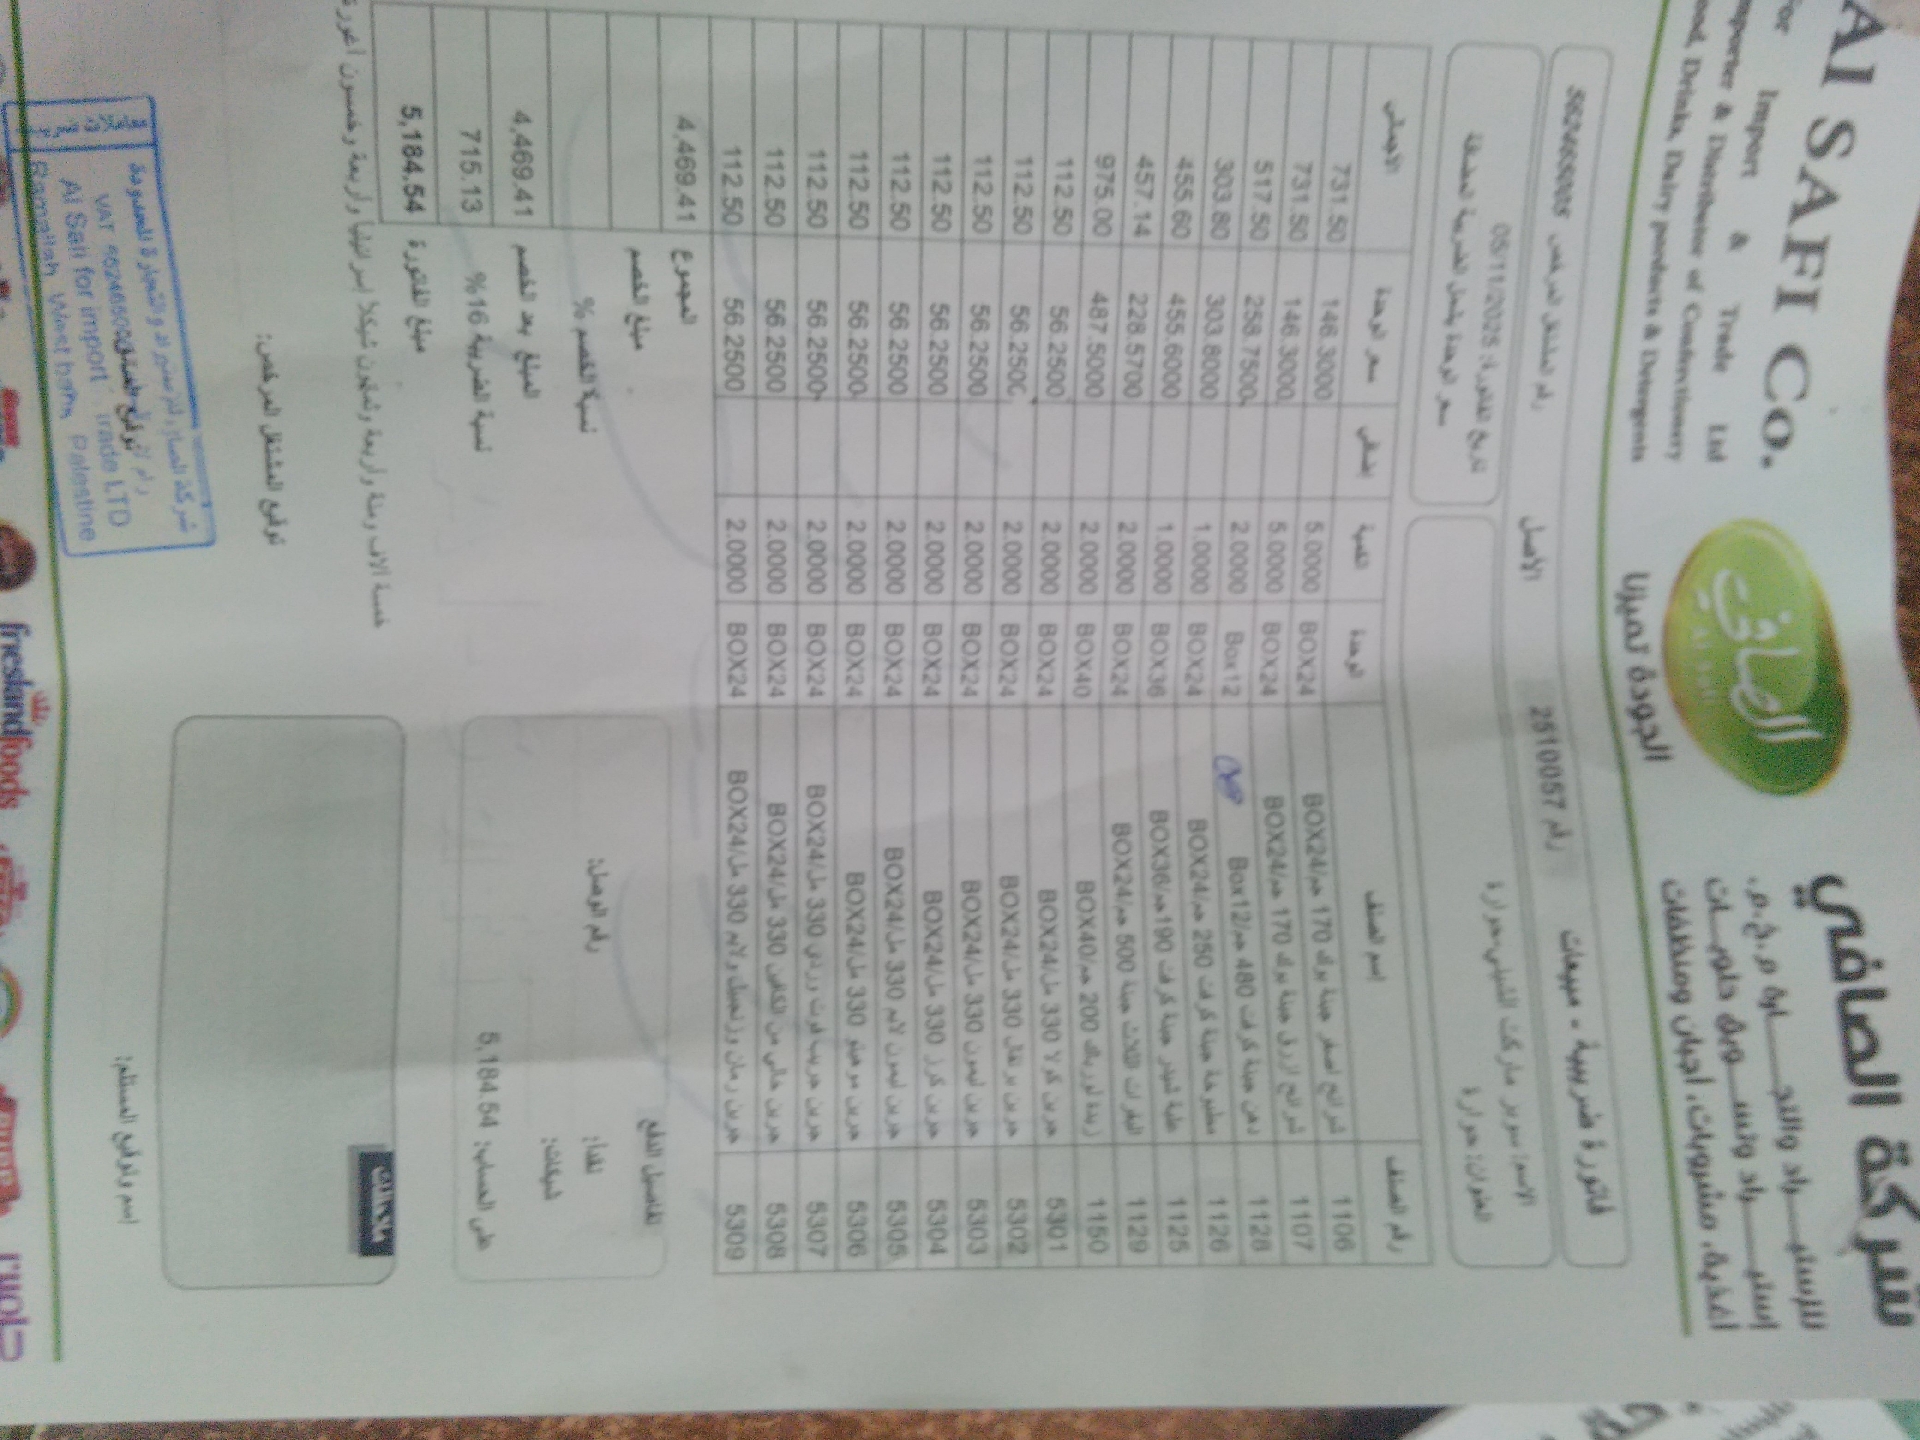 Al SAFI Co.
For Import & Trade Ltd
Importer & Distributor of Confectionery
Food, Drinks, Dairy products & Detergents
الصافي
Al Safi
الجودة تميزنا
شركة الصافي
للإستيـــراد والتجـــارة م.خ.م.
إستيـــراد وتســـويق حلويـــات
أغذية، مشروبات، أجبان ومنظفات
فاتورة ضريبية - مبيعات رقم 2510057 الأصل رقم مشتغل مرخص 562465005
العنوان: حوارة
تاريخ الفاتورة: 05/11/2025
سعر الوحدة يشمل الضريبة المضافة
رقم الصنف إسم الصنف الوحدة الكمية إضافي سعر الوحدة الاجمالي
1106 شرائح اصفر جبنة بوك 170 جم/BOX24 BOX24 5.0000 146.3000 731.50
1107 شرائح ازرق جبنة بوك 170 جم/BOX24 BOX24 5.0000 146.3000 731.50
1128 دهن جبنة كرفت 480 جم/Box12 Box12 2.0000 258.7500 517.50
1126 مطبوخة جبنة كرفت 250 جم/BOX24 BOX24 1.0000 303.8000 303.80
1125 علبة تشيدر جبنة كرفت 190 جم/BOX36 BOX36 1.0000 455.6000 455.60
1129 البقرات الثلاث جبنة 500 جم/BOX24 BOX24 2.0000 228.5700 457.14
1150 زبدة لورباك 200 جم/BOX40 BOX40 2.0000 487.5000 975.00
5301 جرين كولا 330 مل/BOX24 BOX24 2.0000 56.2500 112.50
5302 جرين برتقال 330 مل/BOX24 BOX24 2.0000 56.2500 112.50
5303 جرين ليمون 330 مل/BOX24 BOX24 2.0000 56.2500 112.50
5304 جرين كرز 330 مل/BOX24 BOX24 2.0000 56.2500 112.50
5305 جرين ليمون لايم 330 مل/BOX24 BOX24 2.0000 56.2500 112.50
5306 جرين موهيتو 330 مل/BOX24 BOX24 2.0000 56.2500 112.50
5307 جرين جريب فروت وردي 330 مل/BOX24 BOX24 2.0000 56.2500 112.50
5308 جرين خالي من الكافين 330 مل/BOX24 BOX24 2.0000 56.2500 112.50
5309 جرين رمان وزنجبيل ولايم 330 مل/BOX24 BOX24 2.0000 56.2500 112.50
المجموع 4,469.41
مبلغ الخصم
نسبة الخصم %
المبلغ بعد الخصم 4,469.41
نسبة الضريبة 16% 715.13
مبلغ الفاتورة 5,184.54
تفاصيل الدفع
نقدا: رقم الوصل:
شيكات:
على الحساب: 5,184.54
خمسة الاف ومئة واربعة وثمانون شيكلا اسرائيليا واربعة وخمسون اغورة
ملاحظات
توقيع المشتغل المرخص:
إسم وتوقيع المستلم:
VAT 562465005
Al Safi for import trade LTD
Ramallah West bank Palestine
frieslandfoods